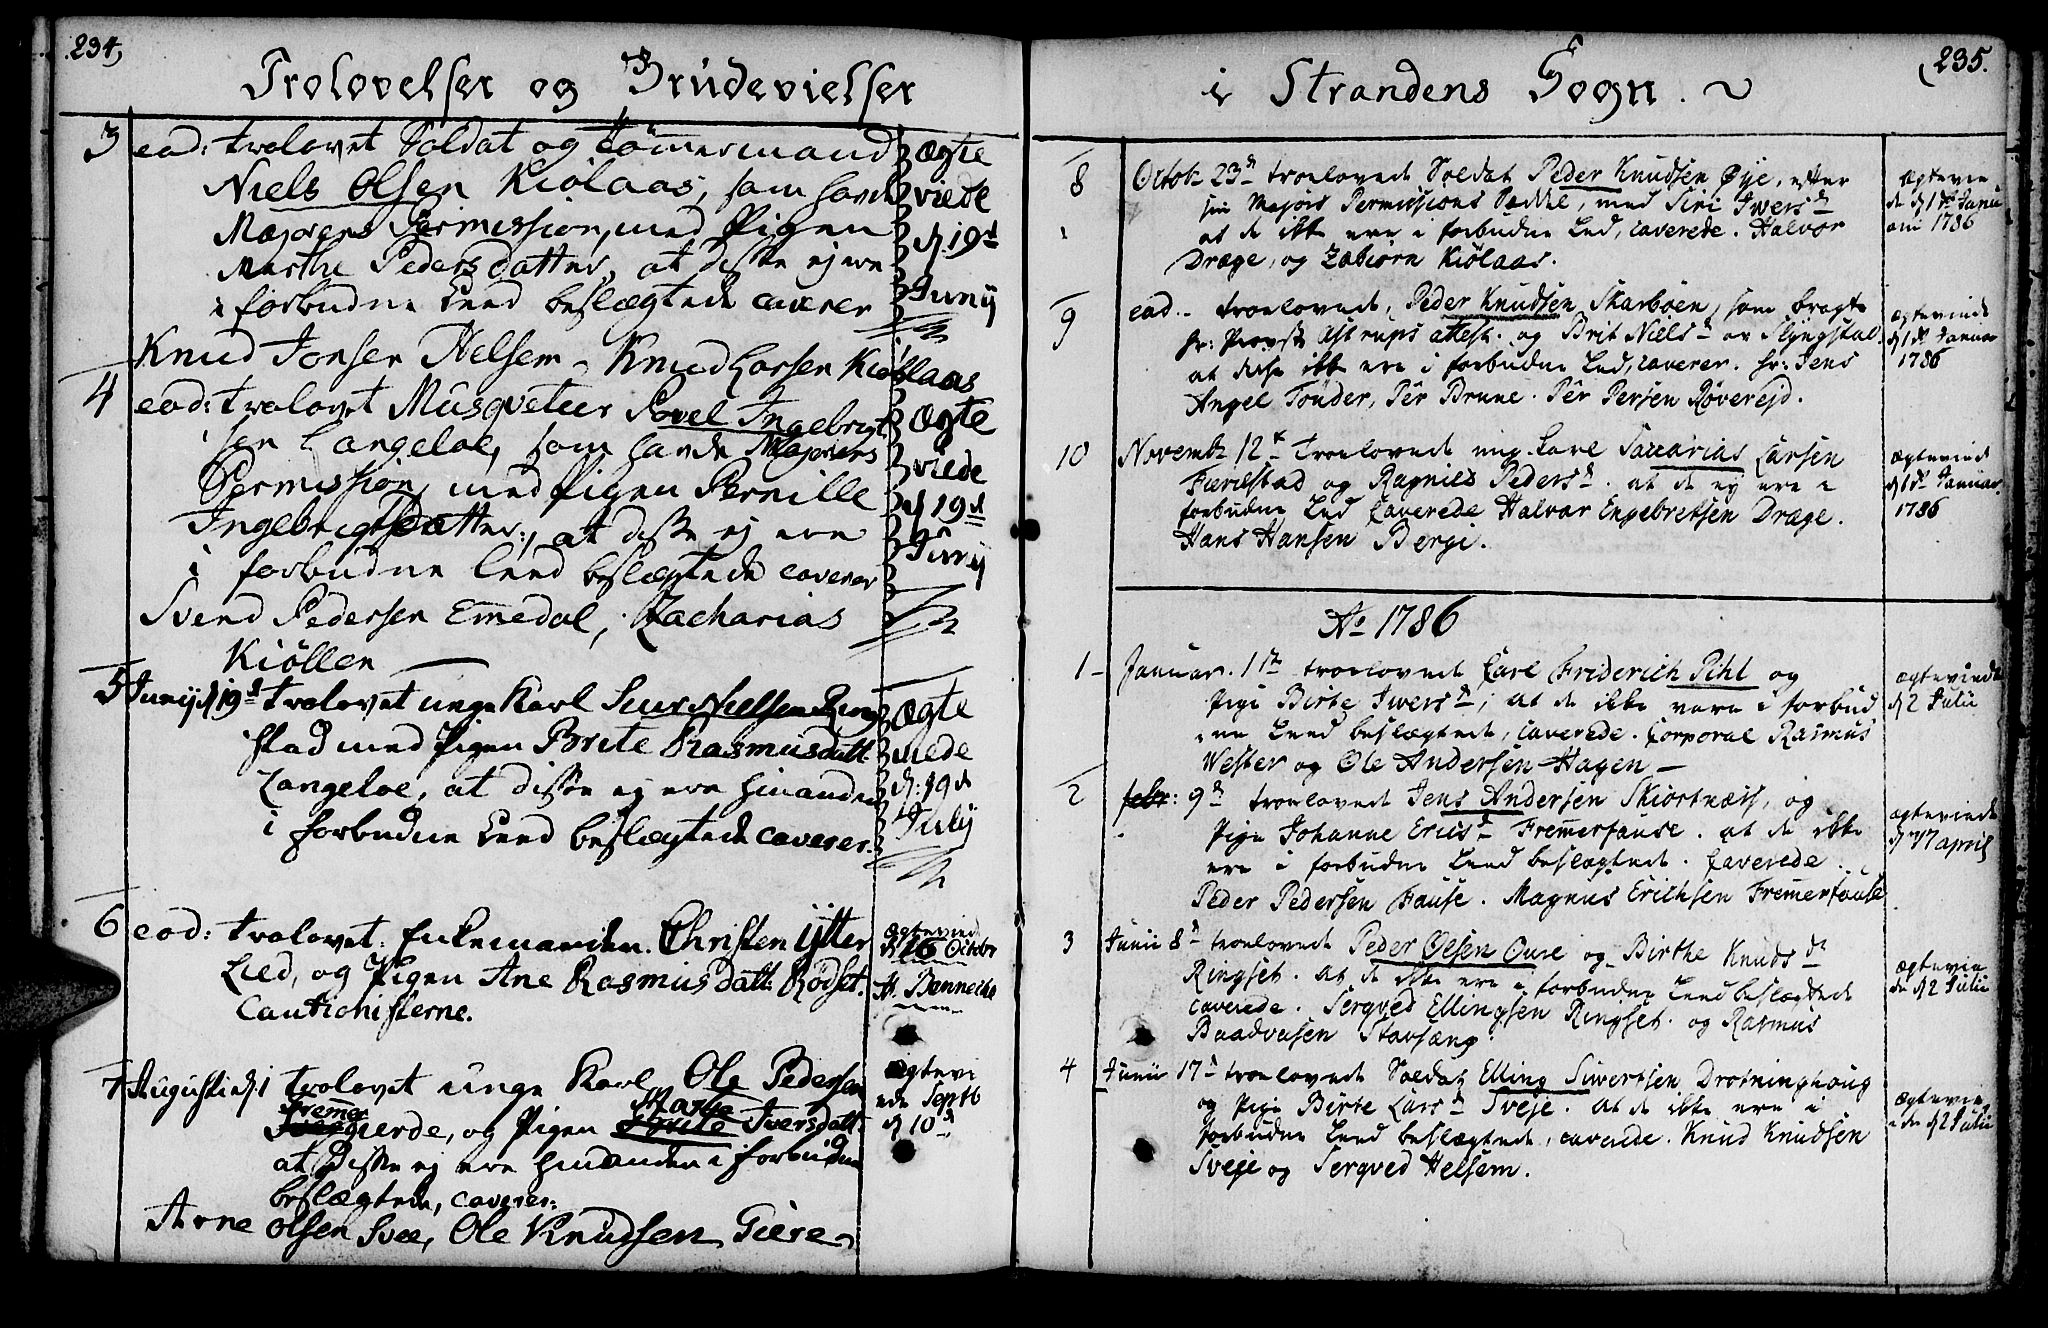 234,
Trolovelser og Brudevielser
3 eod: trolovet Soldat og Tømmermand
Niels Olsen Kiølaas, som havde
Majorens Permission, med Pigen
Marthe Pedersdatter, at disse ej ere
i forbudne Leed beslægtede caverer
Knud Jonsen Helsem - Knud Larsen Kiøllaas
Ægte
viede
d 19d
Junij
4 eod: trolovet Musqveteer Povel Ingebrigt
sen Langeloe, som havde Majorens
Permission, med Pigen Pernille
Ingebrigtsdatter, at disse ej ere
i forbudne Leed beslægtede caverer
Svend Pedersen Emedal, Zacharias
Kiøllen
Ægte
viede
d 19d
Junij
5 Junij d 19d trolovet unge Karl Siur Nielsen Ring
stad med Pigen Brite Rasmusdatt:
Langeloe, at disse ej ere hinanden
i forbudne Leed beslægtede caverer.
Ægte
viede
d: 19d
Julij
6 eod: trolovet: Enkemanden Christen Ytter
Lied, og Pigen Ane Rasmusdatt: Rødset.
Cautionisterne.
ægteviede
d 16 Octobr
A. Benneche
7 Augusti d 1 trolovet unge Karl Ole Pedersen
Fremer Marte
gierde, og Pigen Brite Iversdatt:
at disse ej ere hinanden i forbudne
beslægtede, caverer:
Arne Olsen Svee, Ole Knudsen Giere
Ægtevi
ede Septb
d 10d
i Strandens Sogn.
235.
8 Octob 23d troelovede Soldat Peder Knudsen Øye, efter
sin Majors Permissions Seddel, med Siri Iwersd
at de ikke ere i forbudne Led, caverede. Halvor
Drage, og Zabiørn Kiølaas.
Ægtevie
de d 1d Janu
arii 1786
9 eod. troelovede, Peder Knudsen Skarbøen, som bragte
hr: Provst Astrups attest. og Brit Nielsd av Slyngstal.
at disse ikke ere i forbudne Led, caverer. hr: Jens
Angel Tønder, Pêr Brune. Pêr Persen Røvereid.
ægteviede
d 1d Januar
1786
10 Novemb 12t troelovede ung Karl Saccarias Larsen
Færestad og Ragnild Pedersd. at de ej ere i
forbudne Led Caverede Halvar Engebretsen Drage.
Hans Hansen Berge.
ægteviede
d 1d Januar.
1786
Ao 1786
1 Januar. 1d troelovede Carl Friderich Pihl og
Pige Birte Iwersd; at de ikke vare i forbud
ne Leed beslægtede, caverede. Corporal Rasmus
Wester og Ole Andersen Hagen
ægteviede
d 2 Julii
2 febr: 9d troelovede Jens Andersen Skiortnæss, og
Pige Johanne Ericsd Fremerhause. at de ikke
ere i forbudne Leed beslægtede. Caverede.
Peder Pedersen Hause. Magnus Erichsen Fremerhause
ægteviede
d 17 april
3 Junii 8d troelovede Peder Olsen Oure og Birthe Knudsd
Ringset. at de ikke ere i forbudne Leed beslægtede
caverede. Sergved Ellingsen Ringset. og Rasmus
Baadvasen Stavsæng.
ægtevie
de d 2 Julii
4 Junii 17d troelovede Soldat Elling Siwertsen Drotninghoug
og Pige Birte Larsd Sveje. at de ikke ere i
forbudne Leed beslægtede, caverede. Knud Knudsen
Sveje og Sergved Helsem.
ægtevie
de d 2 Julii